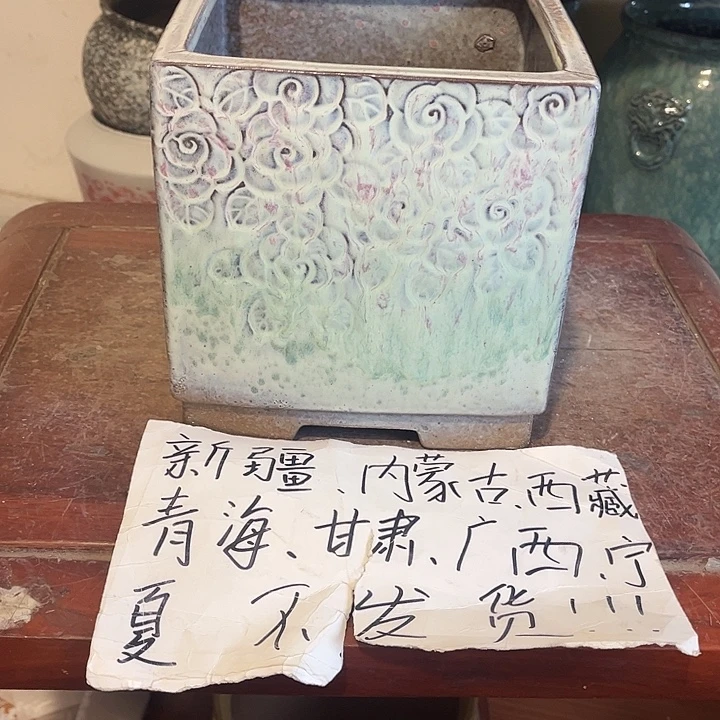 新疆、内蒙古、西藏
青海、甘肃、广西、宁
夏 不发货!!!